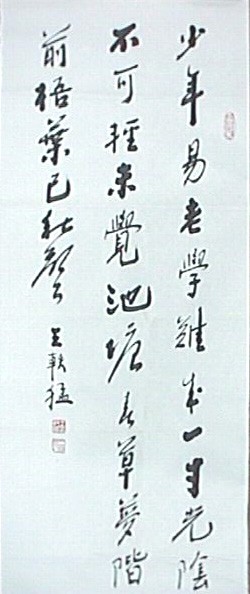 少年易老學難成一寸光陰
不可輕未覺池塘春草夢階
前梧葉已秋聲
王軼猛